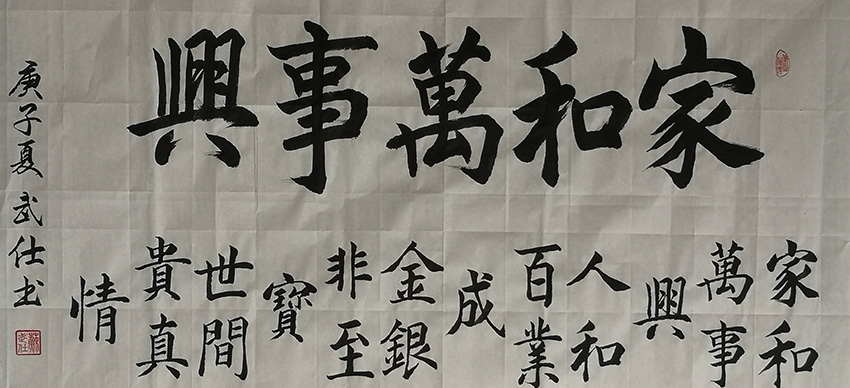 家和萬事興
家和
萬事
興
人和
百業
成
金銀
非至
寳
世間
貴真
情
庚子夏武仕书